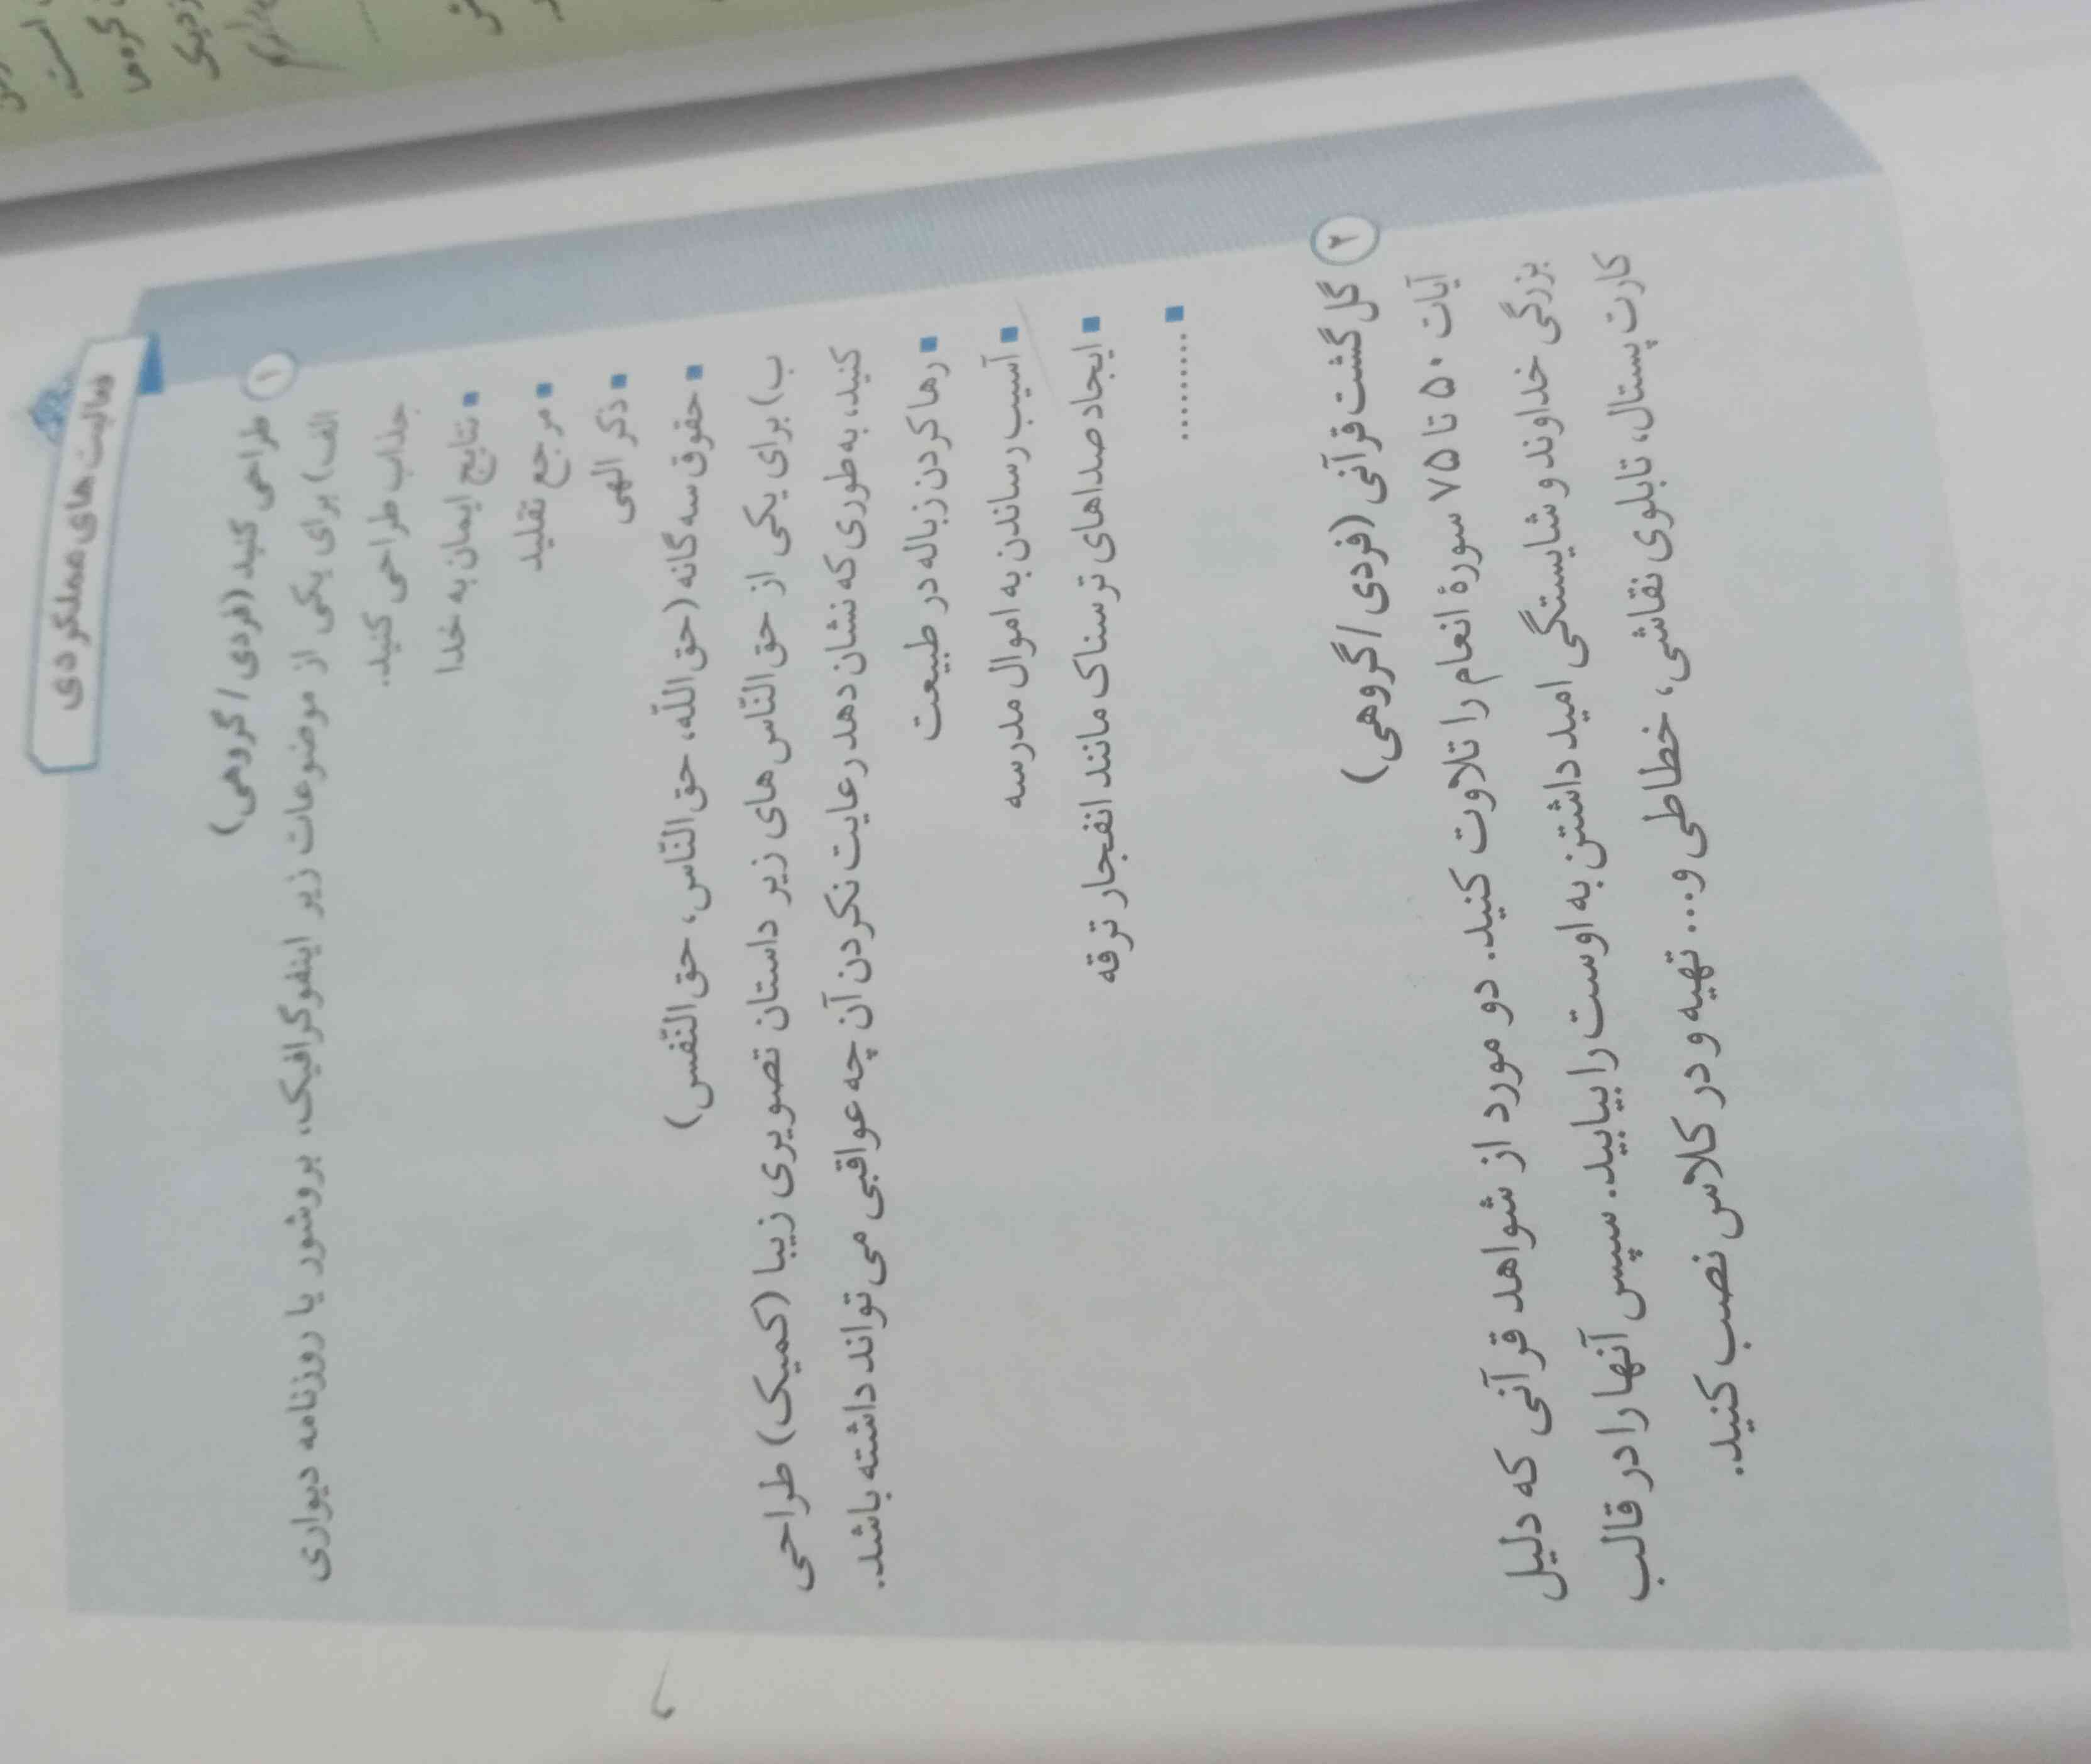 فعالیت‌های عملکردی
۱ طراحی کنید (فردی / گروهی)
الف) برای یکی از موضوعات زیر اینفوگرافیک، بروشور یا روزنامه دیواری
جذاب طراحی کنید.
■ نتایج ایمان به خدا
■ مرجع تقلید
■ ذکر الهی
■ حقوق سه گانه (حق اللّه، حق النّاس، حق النّفس)
ب) برای یکی از حق النّاس های زیر داستان تصویری زیبا (کمیک) طراحی
کنید، به طوری که نشان دهد رعایت نکردن آن چه عواقبی می تواند داشته باشد.
■ رها کردن زباله در طبیعت
■ آسیب رساندن به اموال مدرسه
■ ایجاد صداهای ترسناک مانند انفجار ترقه
■ ..........
۲ گل گشت قرآنی (فردی / گروهی)
آیات ۵۰ تا ۷۵ سورهٔ انعام را تلاوت کنید. دو مورد از شواهد قرآنی که دلیل
بزرگی خداوند و شایستگی امید داشتن به اوست را بیابید. سپس آنها را در قالب
کارت پستال، تابلوی نقاشی، خطاطی و... تهیه و در کلاس نصب کنید.